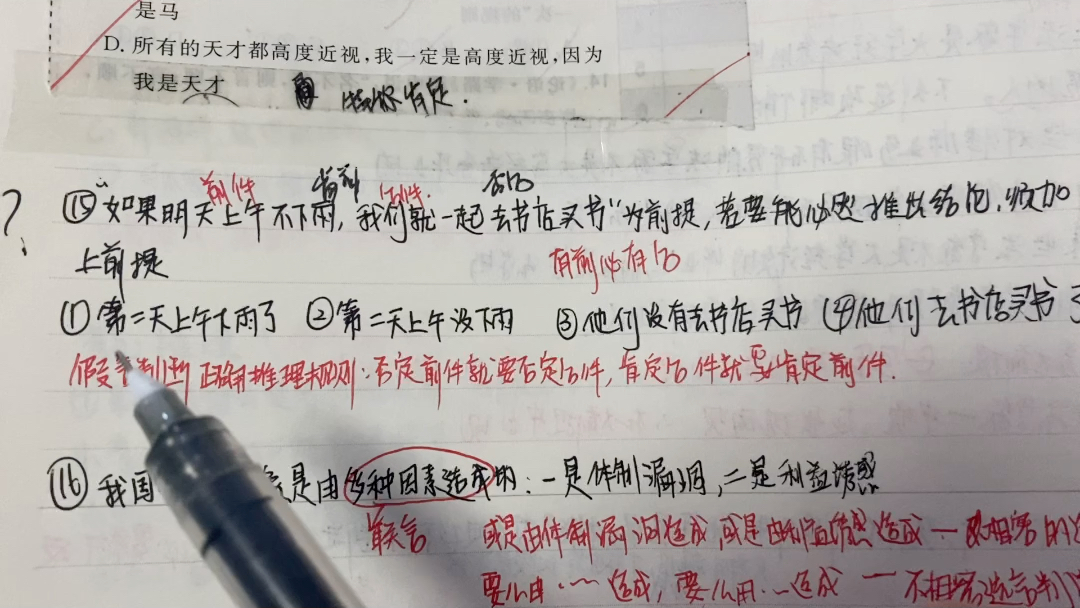 是马
D. 所有的天才都高度近视,我一定是高度近视,因为
我是天才
肯定.
前件 肯前 后件 否后
⑮“如果明天上午不下雨, 我们就一起去书店买书”为前提, 若要能必然推出结论, 须加
上前提
有前必有后
① 第二天上午下雨了 ② 第二天上午没下雨 ③ 他们没有去书店买书 ④他们去书店买书了
判断 正确推理规则:否定前件就要否定后件, 肯定后件就要肯定前件.
⑯ 我国 是由多种因素造成的:一是体制漏洞,二是利益诱惑
联言 或是由体制漏洞造成,或是由利益诱惑造成 — 相容的
要么由…造成, 要么由…造成 — 不相容选言判